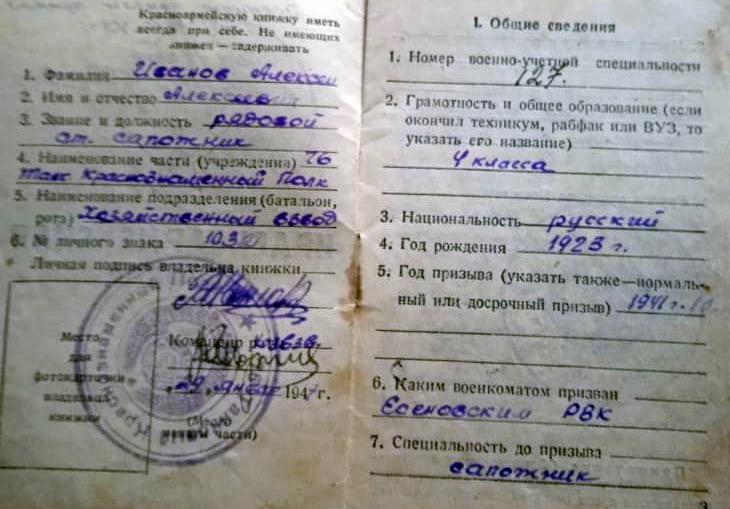 Красноармейскую книжку иметь
всегда при себе. Не имеющих
книжек — задерживать
1. Фамилия Иванов Алексей
2. Имя и отчество Алексеевич
3. Звание и должность рядовой
ст. сапожник
4. Наименование части (учреждения) 76
Танк Краснознаменный Полк
5. Наименование подразделения (батальон,
рота) Хозяйственный взвод
6. № личного знака
Личная подпись владельца книжки
Место
для
фотокарточки
владельца
книжки
Командир
января 194 г.
(Место
печати части)
I. Общие сведения
1. Номер военно-учетной специальности
127.
2. Грамотность и общее образование (если
окончил техникум, рабфак или ВУЗ, то
указать его название)
4 класса
3. Национальность русский
4. Год рождения 1923 г.
5. Год призыва (указать также — нормаль-
ный или досрочный призыв) 1941 г.
6. Каким военкоматом призван
РВК
7. Специальность до призыва
сапожник
3